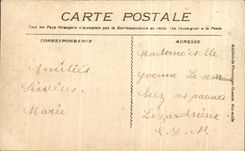 CARTE POSTALE
Tous les Pays Etrangers n'acceptent pas la Correspondance au recto. (Se renseigner à la Poste
CORRESPONDANCE
ADRESSE
Amitiés
Sincères
Marie
Mademoiselle
Yvonne Le
chez ses parents
Lézardrieux
C. d. N.